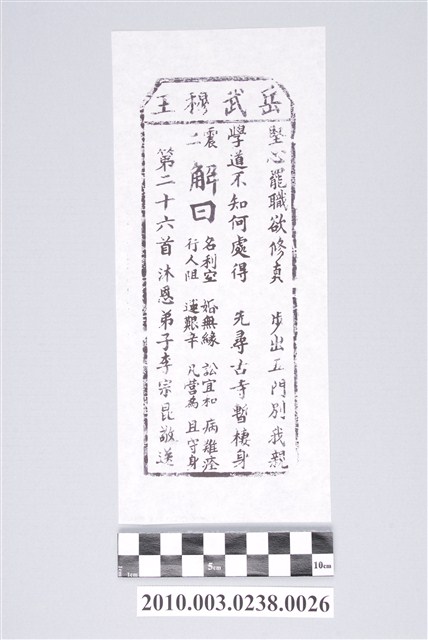 岳武穆王
堅心罷職欲修真 步出五門別我親
學道不知何處得 先尋古寺暫棲身
震二 解曰
名利空 婚無緣 訟宜和 病難痊
行人阻 運艱辛 凡營為 且守身
第二十六首 沐恩弟子李宗昆敬送
1cm 5cm 10cm
2010.003.0238.0026